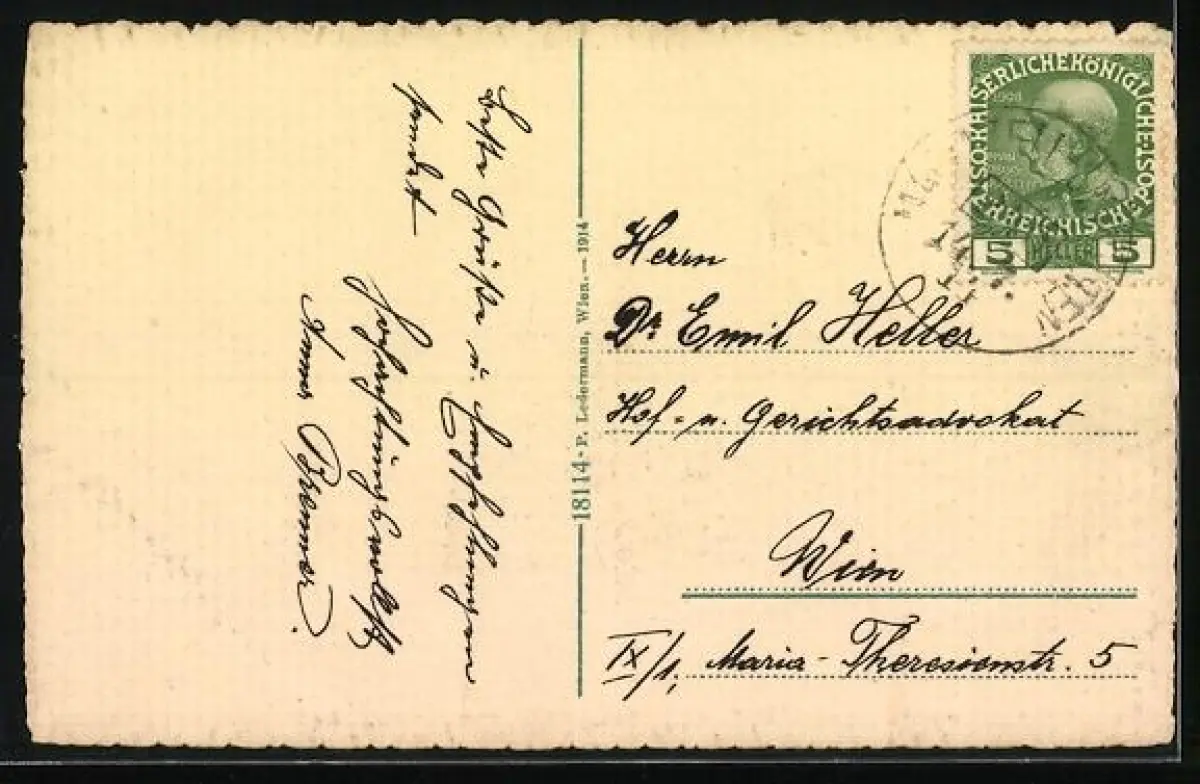 Beste Grüße u. Empfehlungen
sendet
Hochachtungsvollst
Anna Bremer.
18114 - P. Ledermann, Wien. — 1914
KAISERLICHE KÖNIGLICHE ÖSTERREICHISCHE POST
1908
5 HELLER 5
Herrn
Dr Emil Heller
Hof- u. Gerichtsadvokat
Wien
IX/1, Maria-Theresienstr. 5